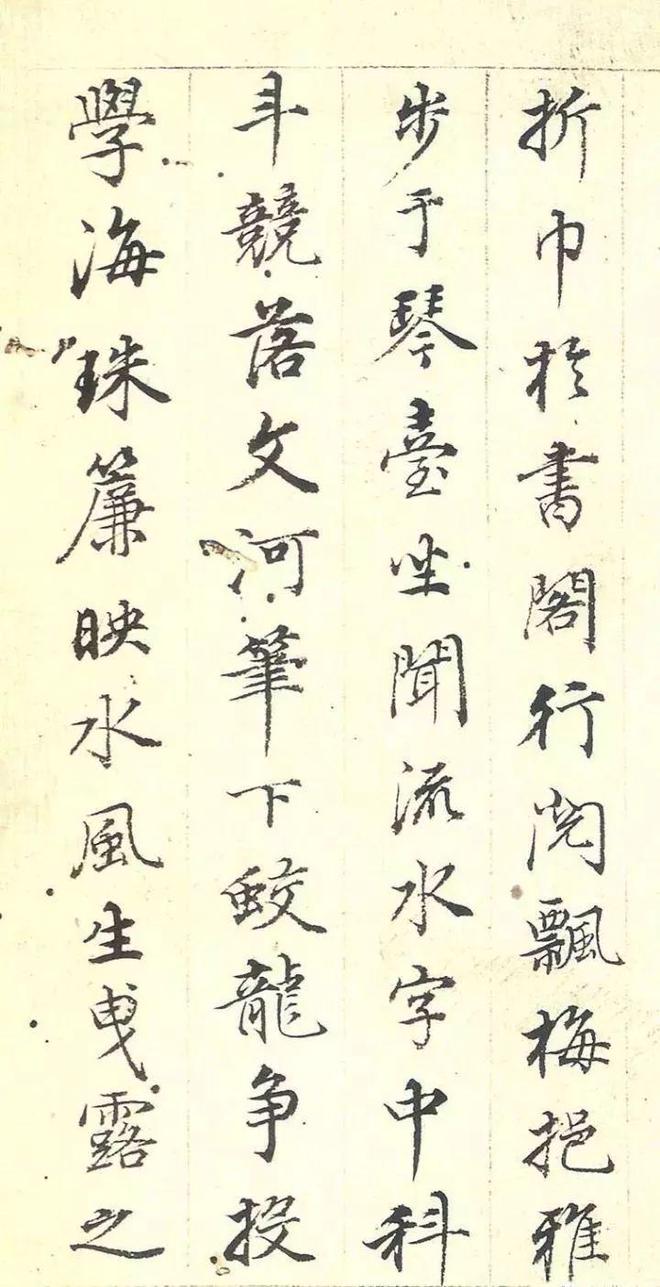 折巾於書閣行閱飄梅挹雅
步于琴臺坐聞流水字中科
斗競落文河筆下蛟龍爭投
學海珠簾映水風生曳露之